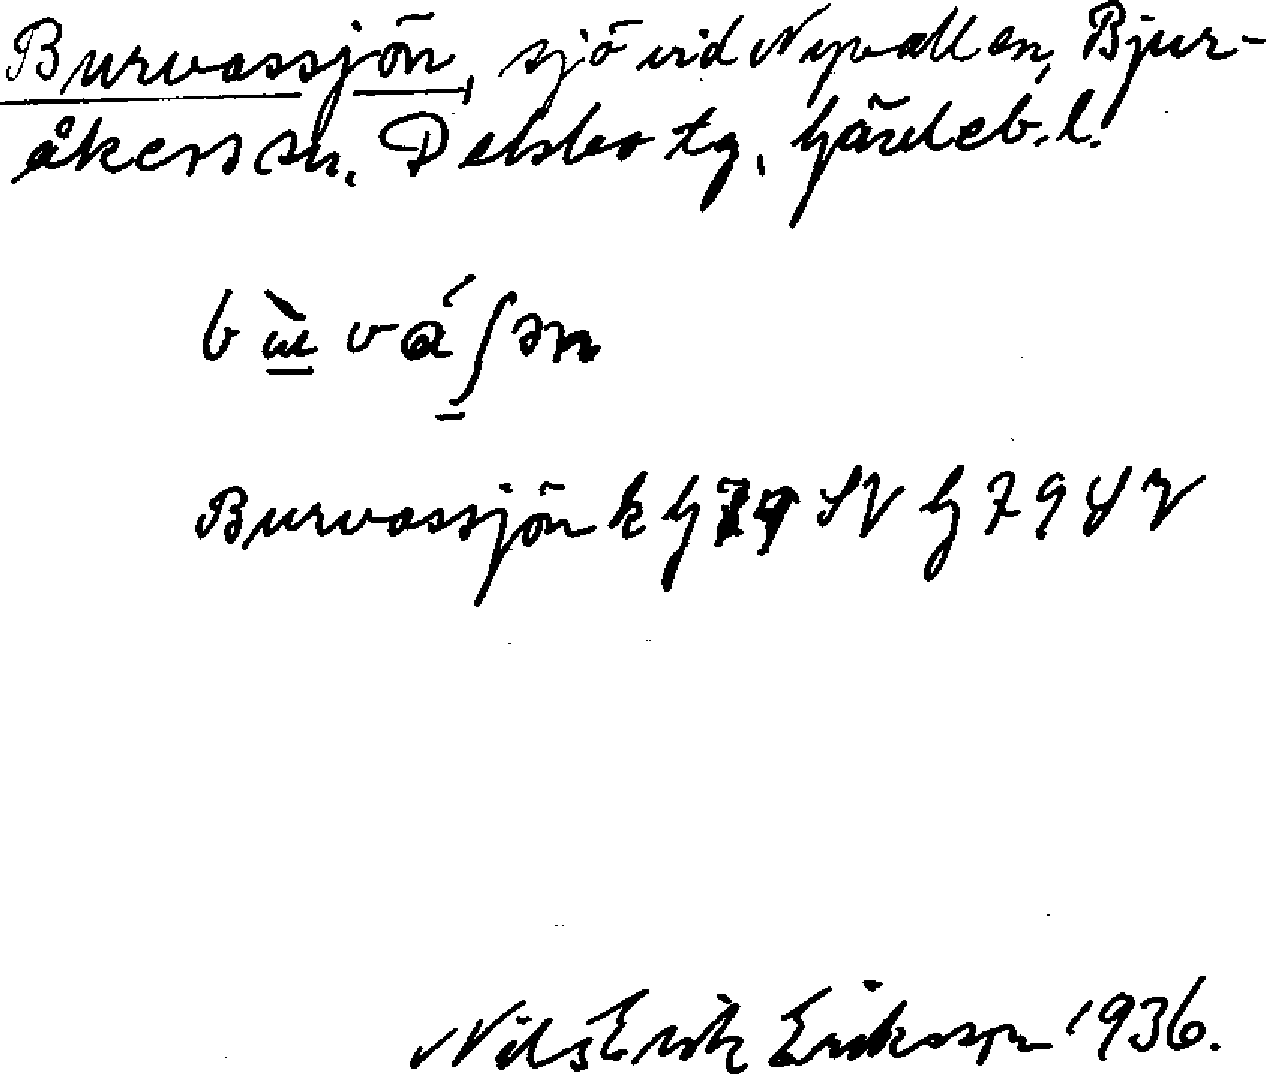 Burvassjön, sjö vid Nyvallen, Bjur-
åkers sn. Delsbo tg, Gävleb. l.
Burvassjön k G79 SV G79 SV
Nils Erik Eriksson 1936.